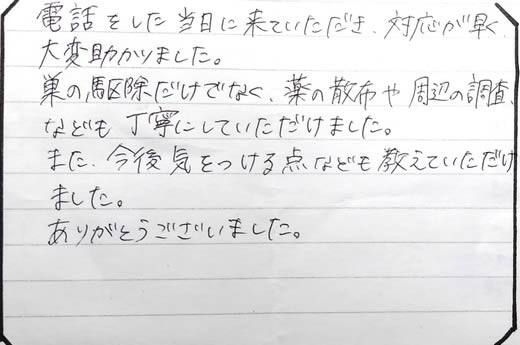 電話をした当日に来ていただき、対応が早く
大変助かりました。
巣の駆除だけでなく、薬の散布や周辺の調査
なども丁寧にしていただけました。
また、今後気をつける点なども教えていただけ
ました。
ありがとうございました。